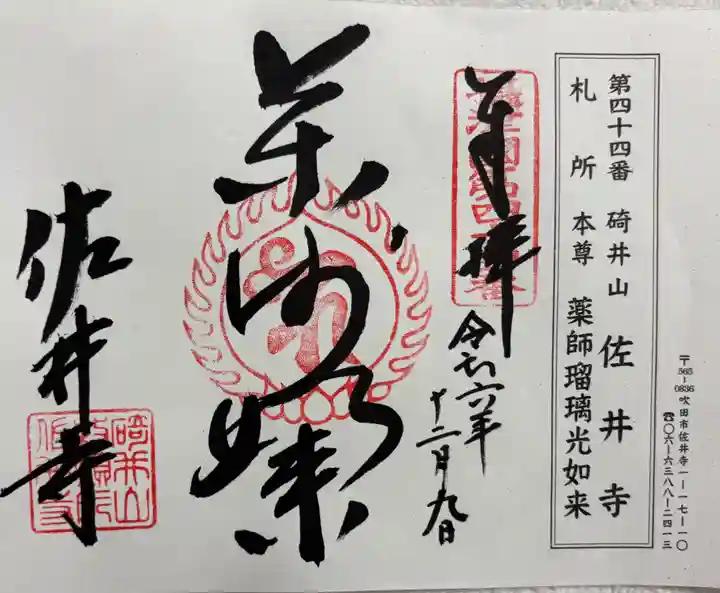 〒565-0836 吹田市佐井寺一ー一七ー一〇
☎〇六ー六三八八ー二四一三
第四十四番 碕井山 佐井寺
札所 本尊 薬師瑠璃光如来
奉拝
令和六年
十二月九日
薬师如来
佐井寺